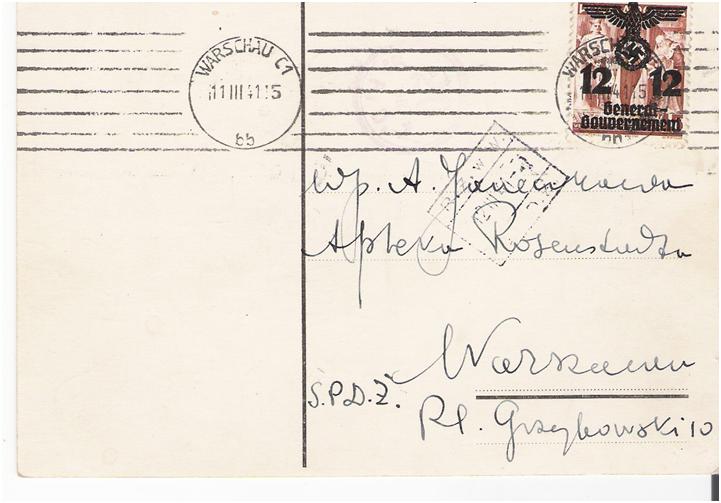 WARSCHAU C1
11 III 41.15
bb
WARSCH
12 12
General-
Gouvernement
Wp. A.
Apteka Rosenstadta
Warszawa
S.P.D.Ż.
Pl. Grzybowski 10